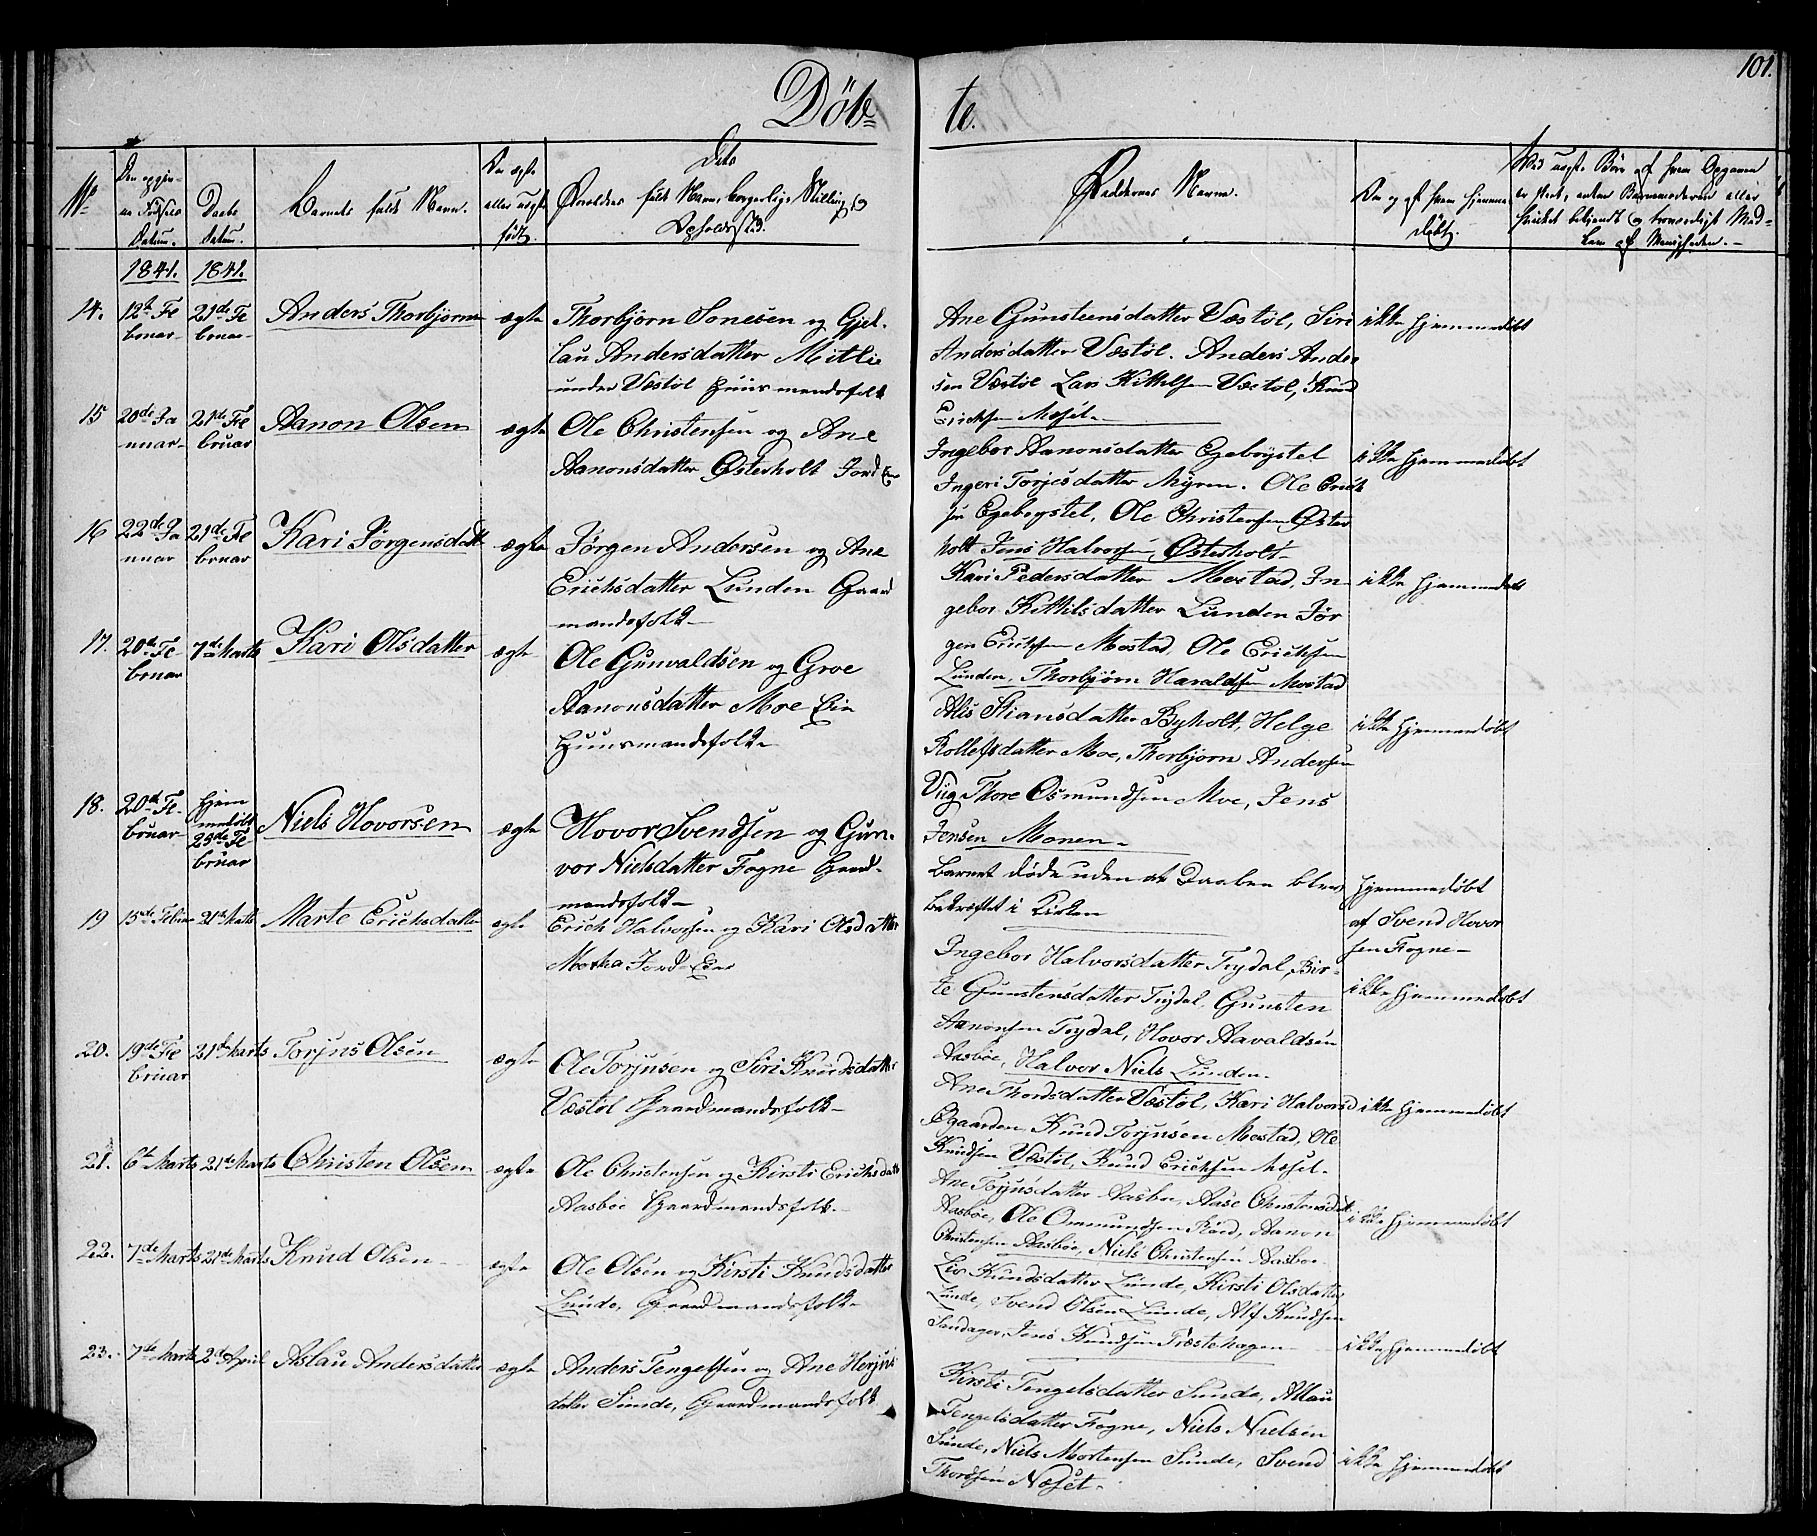 101.
Døb= te.
No
Den opgivne Fødsels Datum.
Daabs Datum.
Barnets fulde Navn.
Om ægte eller uægte født.
Dets Forældres fulde Navn, borgerlige Stilling og Opholdssted.
Faddernes Navne.
Om og af hvem hjemme døbt.
Ved uægte Børn af hvem Opgaven er skeet, enten Barnemoderen eller hvilket bekjendt og troværdigt Medlem af Menigheden.
1841. 1841.
14. 12te Februar 21de Februar Anders Thorbjørns ægte
Thorbjørn Jonesen og Gjel-
lau Andersdatter Mitlie
under Væstøl Huusmandsfolk
Ane Gunsteensdatter Væstøl, Siri
Andersdatter Væstøl. Anders Ander
sen Væstøl Lars Kittelsen Væstøl, Knud
Erichsen Mesel.
ikke hjemmedøbt
15 20de Januar 21de Februar Aanon Olsen ægte
Ole Christensen og Ane
Aanonsdatter Østerholt Jord Eier
Ingebor Aanonsdatter Egebøystel
Ingeri Torjesdatter Myren. Ole Erich
sen Egebøystel, Ole Christensen Øster
holt Jens Halvorsen, Østerholt
ikke hjemmedøbt
16 22de Januar 21de Februar Kari Jørgensdatt ægte
Jørgen Andersen og Ane
Erichsdatter Lunden Gaard
mandsfolk
Kari Pedersdatter Mostad, In-
gebor Kittilsdatter Lunden Jør
gen Erichsen Mostad, Ole Erichsen
Lunden, Thorbjørn Haraldsen Mostad
ikke hjemmedøbt
17. 20de Februar 7de Marts Kari Olsdatter ægte
Ole Gunvaldsen og Groe
Aanonsdatter Moe Eie
Huusmandsfolk
Alis Stiansdatter Byholt, Helge
Rollefsdatter Moe, Thorbjørn Andersen
Viig Thore Osmundsen Moe, Jens
Jensen Monen.
ikke hjemmedøbt
18. 20de Februar hjemmedøbt 23de Februar Niels Hovorsen ægte
Hovor Svendsen og Gun-
vor Nielsdatter Fogne Gaard-
mandsfolk
Barnet døde uden at Daaben blev
bekræftet i Kirken
hjemmedøbt
af Svend Hovor
sen Fogne
19 15de Februar 21de Marts Marte Erichsdatter ægte
Erich Halvorsen og Kari Olsdatter
Moska Jord-Eier
Ingebor Halvorsdatter Trydal, Bir-
te Gunstensdatter Trydal, Gunsten
Aanonsen Trydal, Hovor Aavaldsen
Aasbøe, Halvor Niels Lunden.
ikke hjemmedøbt
20. 19de Februar 21de Marts Torjus Olsen ægte
Ole Torjusen og Siri Knudsdatter
Væstøl Gaardmandsfolk
Ane Thordsdatter Væstøl, Kari Halvorsd
Øgaarden Knud Torjusen Mostad, Ole
Knudsen Væstøl, Knud Erichsen Mesel.
ikke hjemmedøbt
21. 6te Marts 21de Marts Christen Olsen ægte
Ole Christensen og Kirsti Erichsdatt
Aasbøe Gaardmandsfolk.
Ane Torjusdatter Aasbøe, Aase Christensdatt
Aasbøe, Ole Ommundsen Røed, Aanon
Christensen Aasbøe, Niels Christensen Aasbøe
ikke hjemmedøbt
22. 7de Marts 21de Marts Knud Olsen ægte
Ole Olsen og Kirsti Knudsdatter
Lunde, Gaardmandsfolk
Liv Knudsdatter Lunde, Kirsti Olsdatter
Lunde, Svend Olsen Lunde, Alf Knudsen
Sandager, Jens Knudsen Træstehagen
ikke hjemmedøbt
23. 7de Marts 2d April Aslau Andersdatter ægte
Anders Tengelsen og Ane Herjus
datter Sunde, Gaardmandsfolk
Kirsti Tengelsdatter Sunde, Aslau
Tengelsdatter Fogne, Niels Nielsen
Sunde, Niels Mortensen Sunde, Svend
Thordsen Næset.
ikke hjemmedøbt